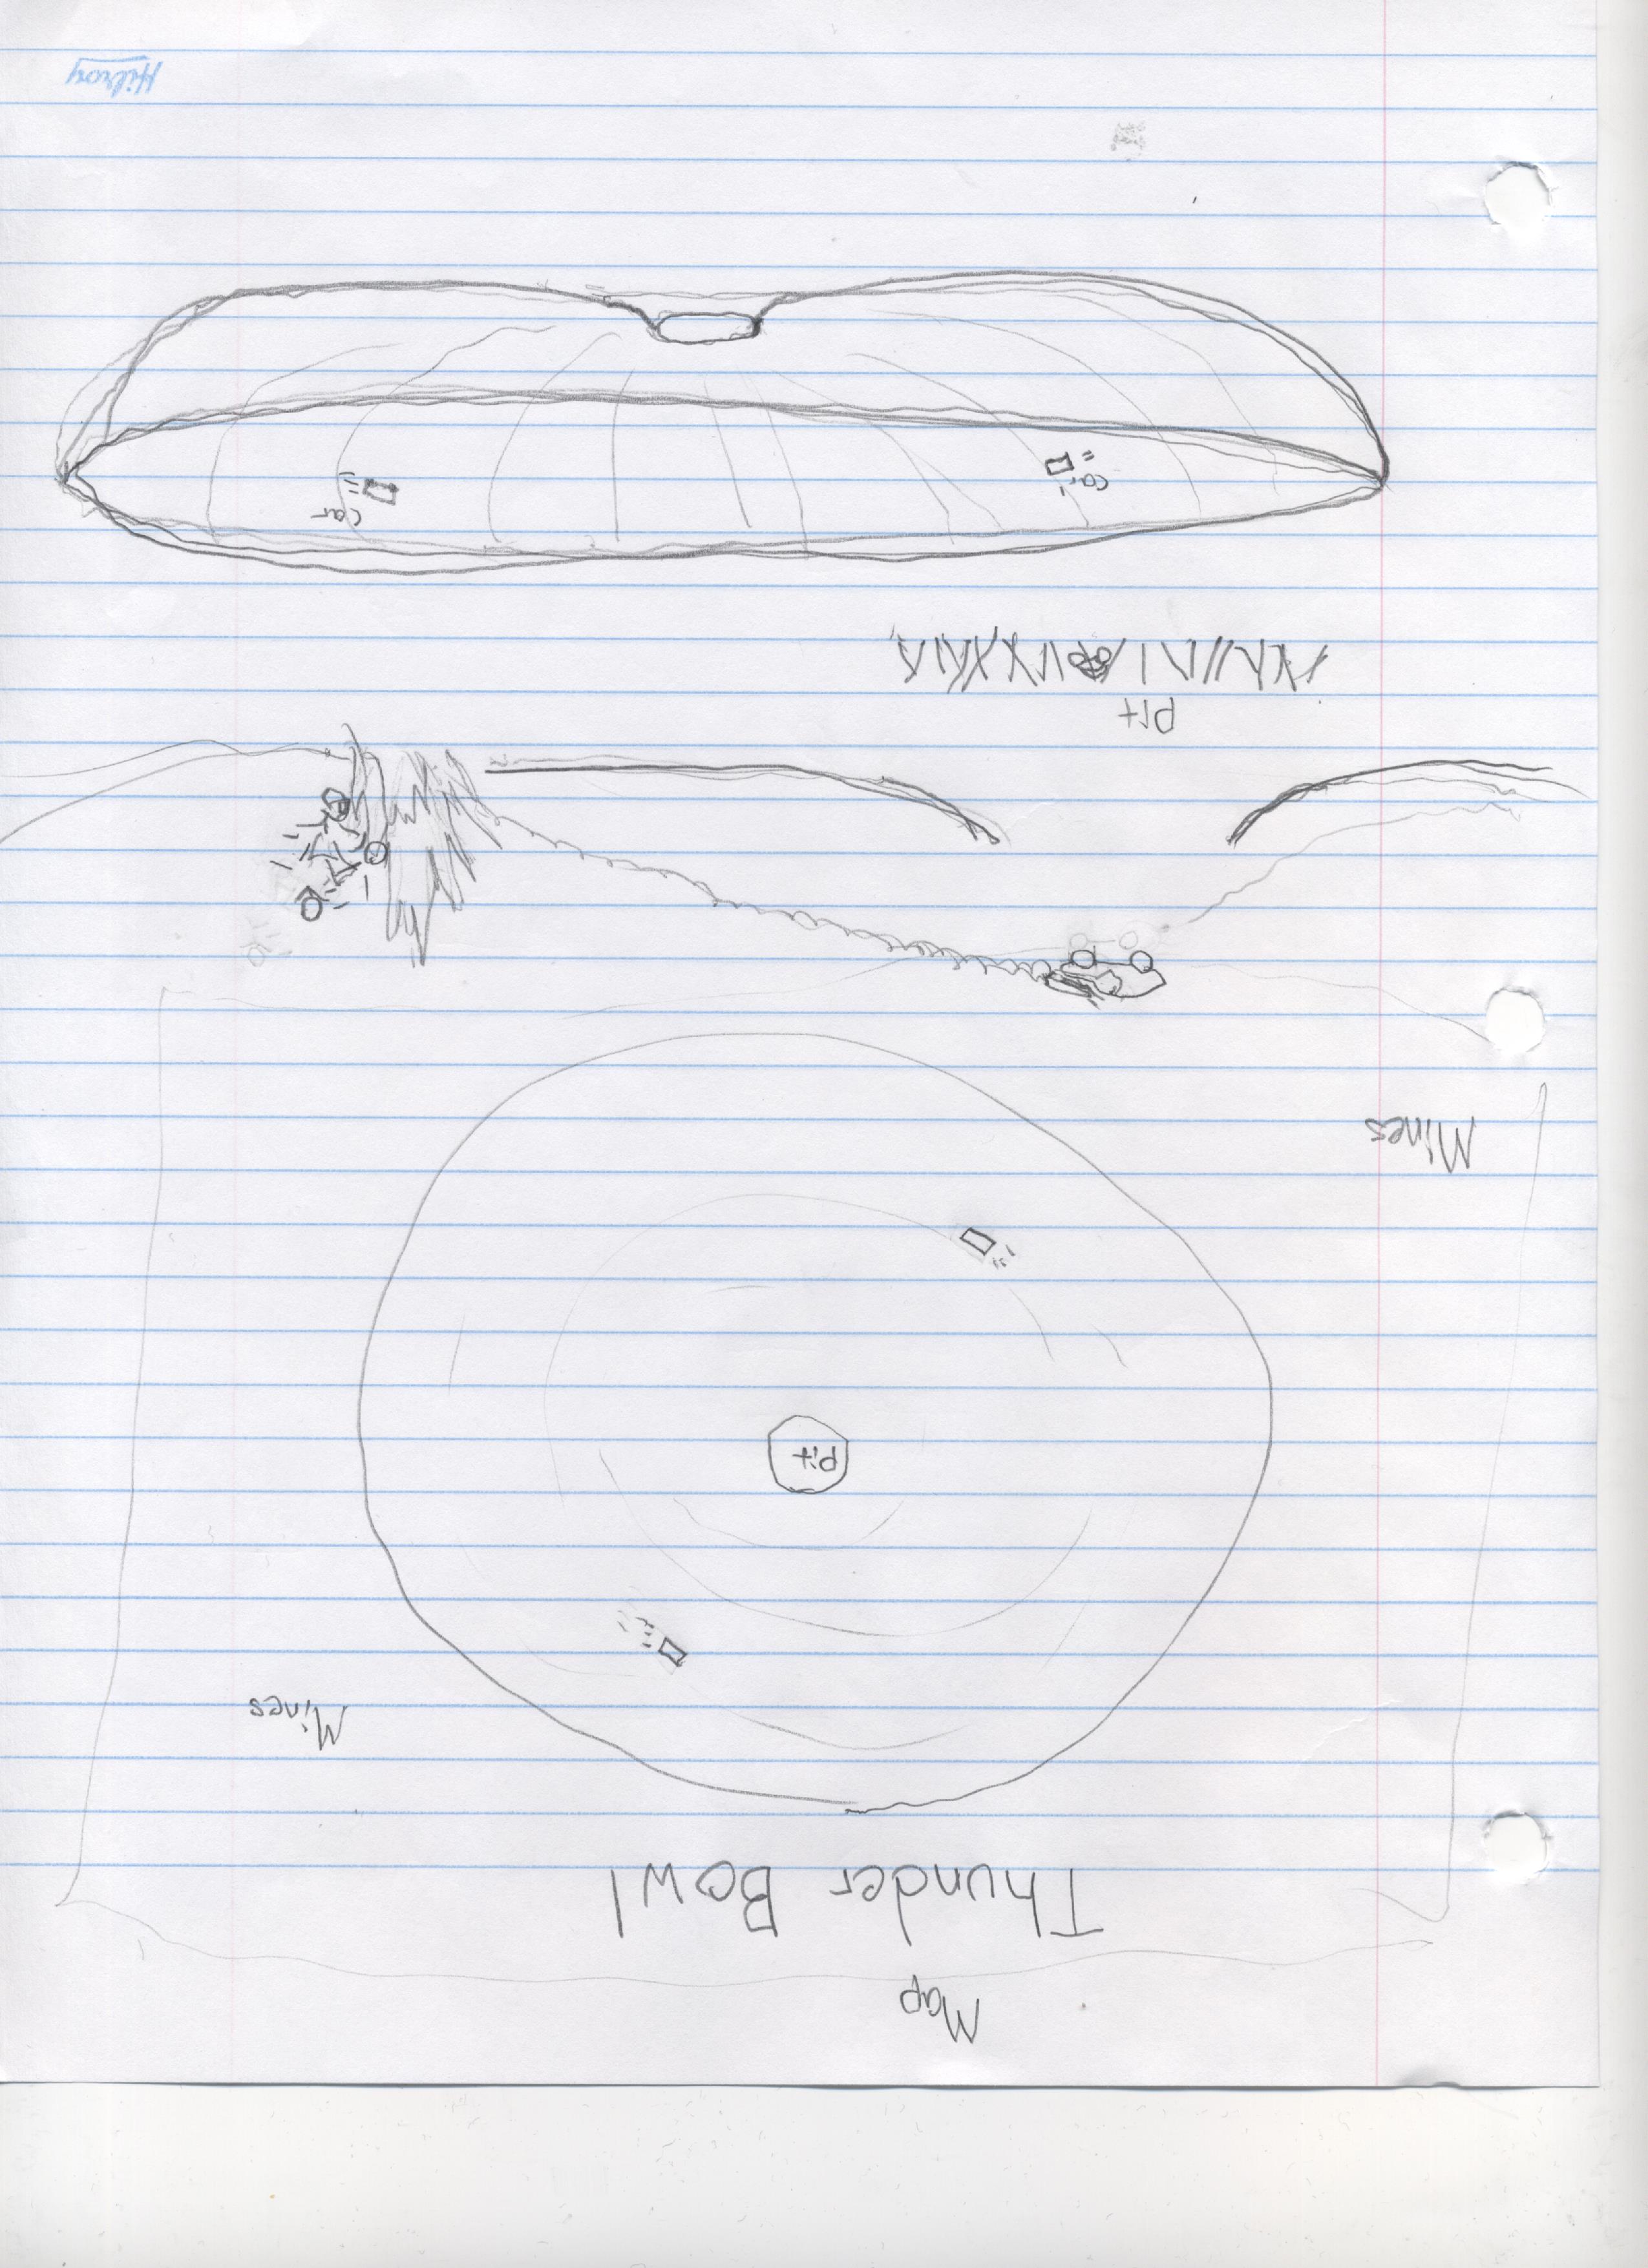 Map
Thunder Bowl
Mines
Pit
Mines
Pit
car
car
Hilroy